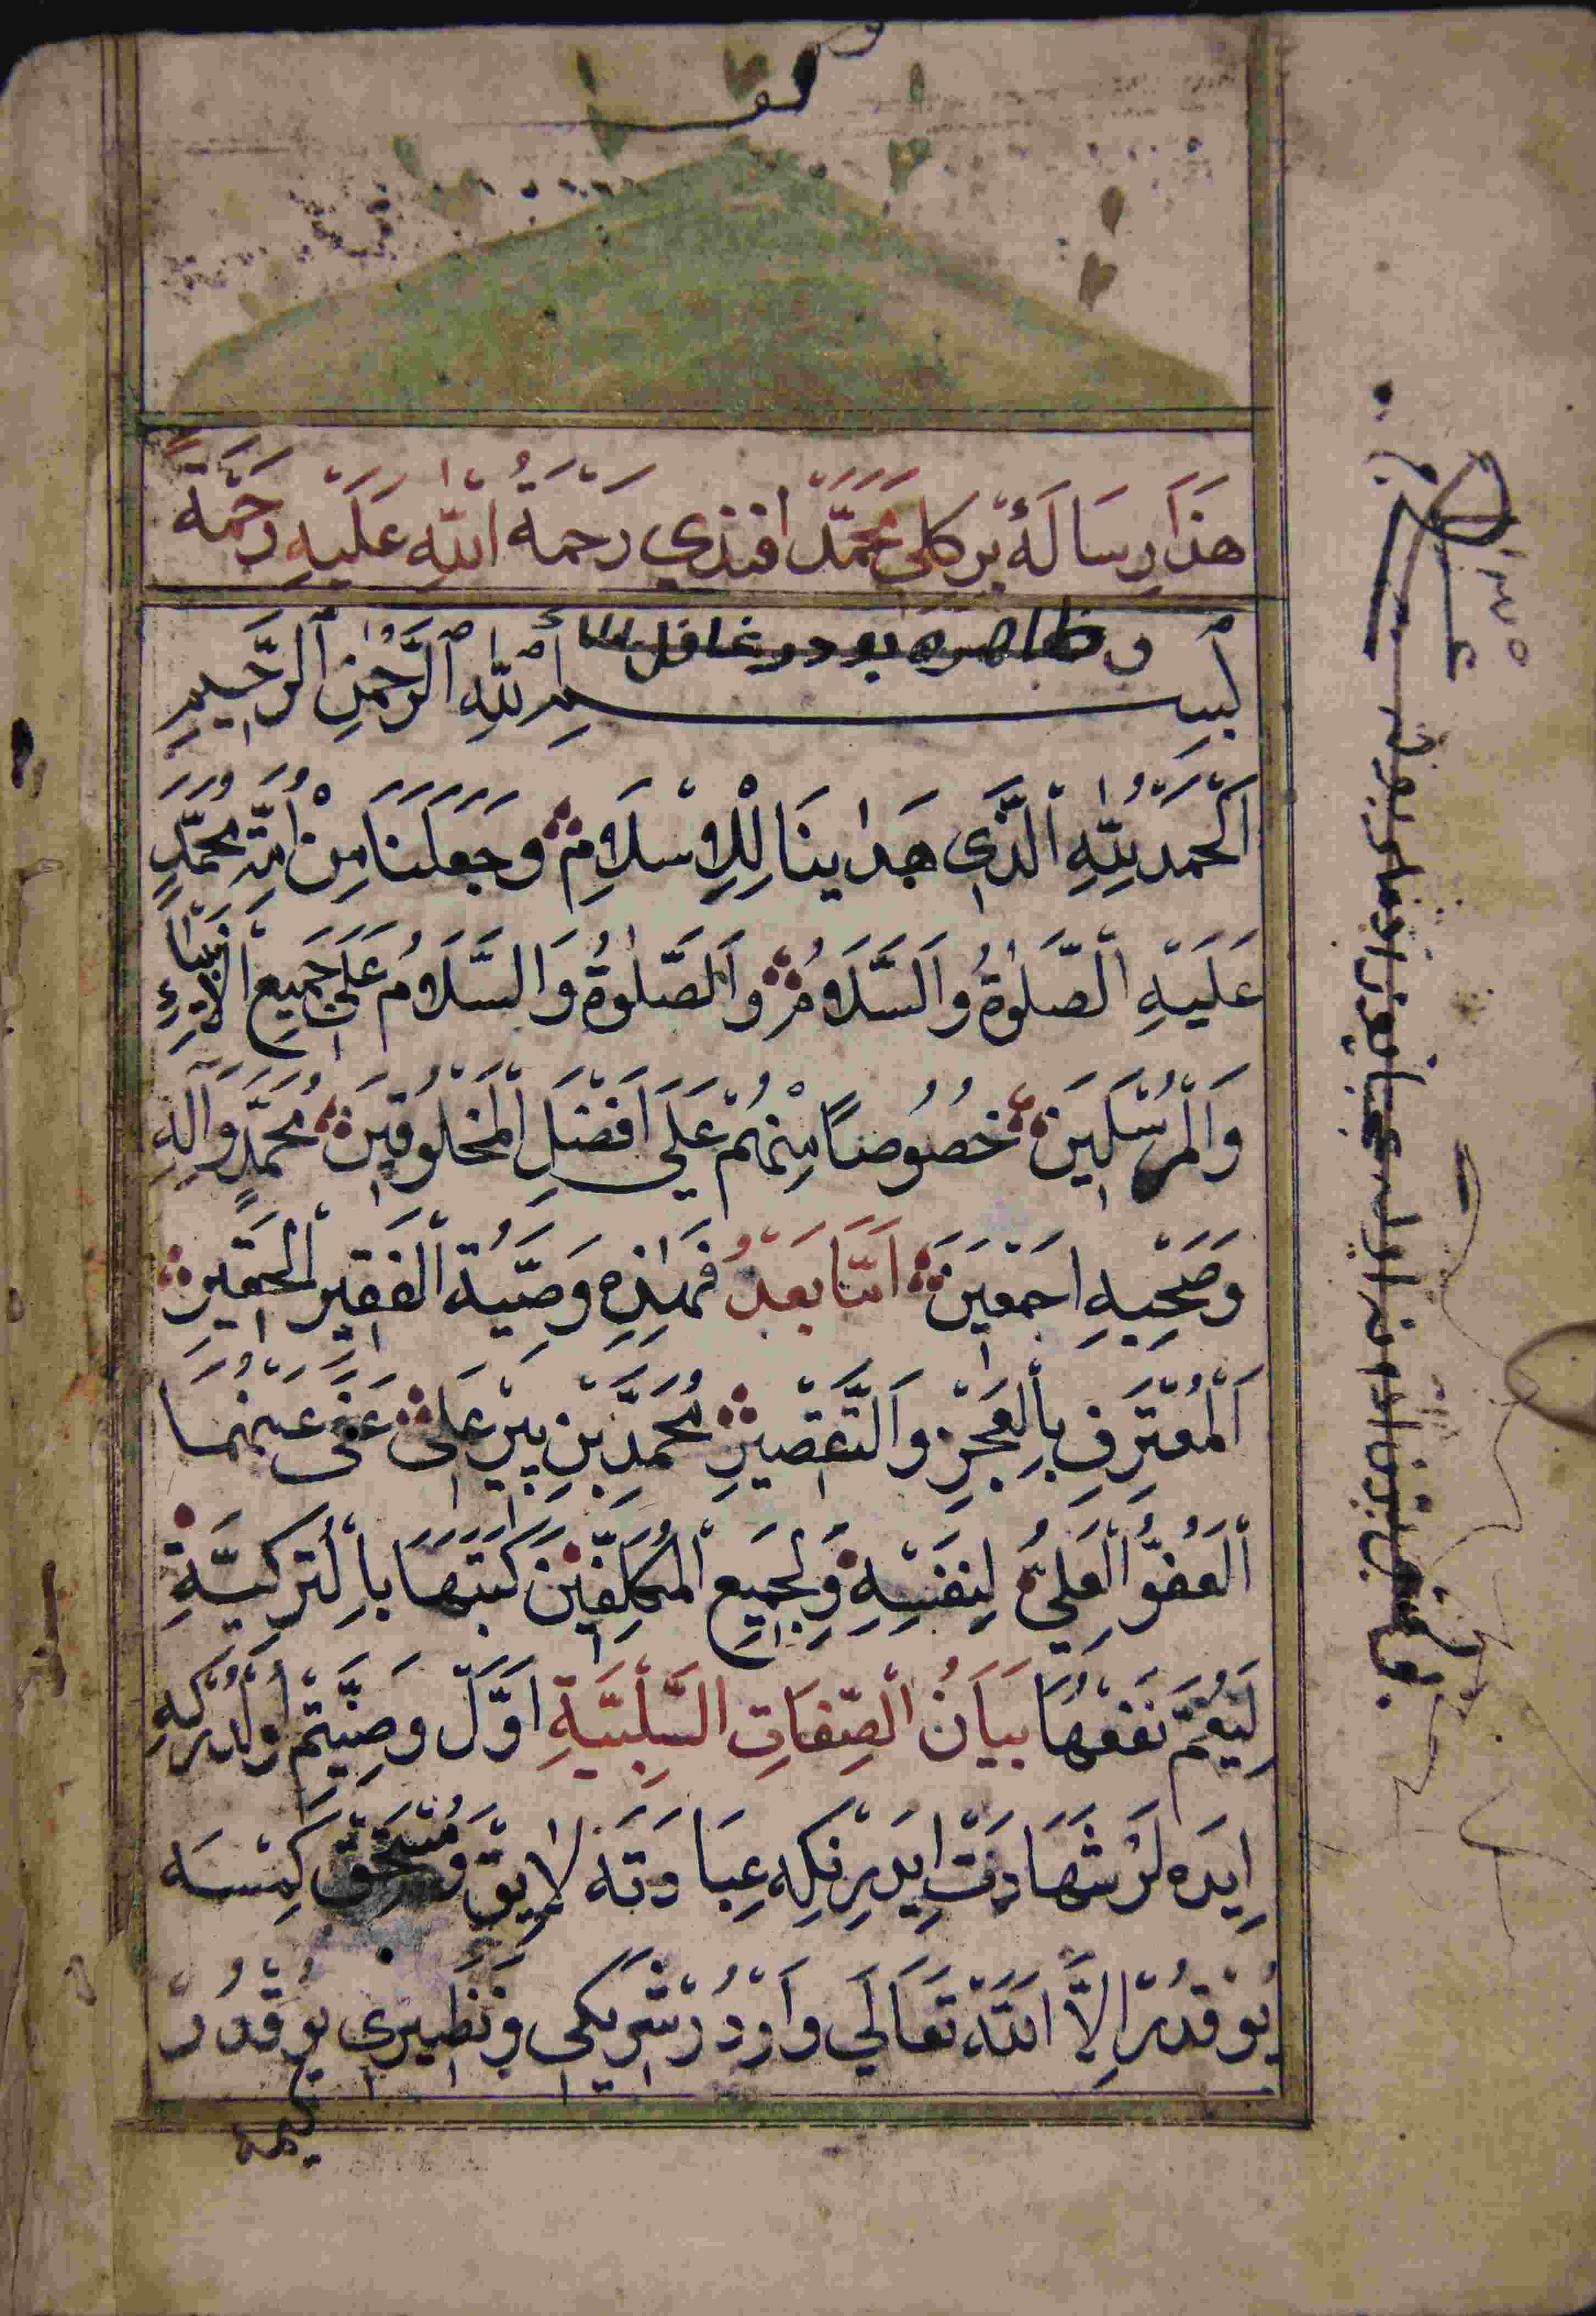 هَذَا رِسَالَهٔ بَرْكَلِي مُحَمَّدْ افَنْدِي رَحْمَةُ اللّٰهِ عَلَيْهِ رَحْمَةً
بِسْمِ اللّٰهِ الرَّحْمٰنِ الرَّحِيمِ
اَلْحَمْدُ لِلّٰهِ الَّذِي هَدٰينَا لِلْاِسْلَامِ وَجَعَلَنَا مِنْ اُمَّةِ مُحَمَّدٍ
عَلَيْهِ الصَّلٰوةُ وَالسَّلَامُ وَالصَّلٰوةُ وَالسَّلَامُ عَلَى جَمِيعِ الْاَنْبِيَاءِ
وَالْمُرْسَلِينَ خُصُوصًا مِنْهُمْ عَلَى اَفْضَلِ الْمَخْلُوقِينَ مُحَمَّدٍ وَآلِهِ
وَصَحْبِهِ اَجْمَعِينَ اَمَّا بَعْدُ فَهٰذِهِ وَصِيَّةُ الْفَقِيرِ الْحَقِيرِ
اَلْمُعْتَرِفِ بِالْعَجْزِ وَالتَّقْصِيرِ مُحَمَّدِ بْنِ پِيرْ عَلِى عَفَى عَنْهُمَا
الْعَفُوُّ الْعَلِيُّ لِنَفْسِهِ وَلِجَمِيعِ الْمُكَلَّفِينَ كَتَبْتُهَا بِالتُّرْكِيَّةِ
لِيَعُمَّ نَفْعُهَا بَيَانُ الصِّفَاتِ السَّلْبِيَّةِ اَوَّلْ وَصِيَّتِمْ اُولْدُرْكِه
اِيدَه لَرْ شَهَادَتْ اِيدَرِنْكِه عِبَادَتَه لَايِقْ وَمُسْتَحِقْ كِمْسَه
يُوقْدُرْ اِلَّا اللّٰهْ تَعَالَى وَارْدُرْ شَرِيكِى وَنَظِيرِى يُوقْدُرْ